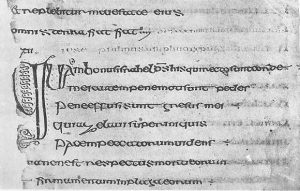 & replebitur maiestate eius
omnis terra fiat fiat
Quam bonus israhel ds his qui recto sunt corde
mei autem pene moti sunt pedes
Pene effusi sunt gressus mei
quia zelaui super iniquis
Pacem peccatorum uidens
quia non est respectus morti eorum
firmamentum in plaga eorum